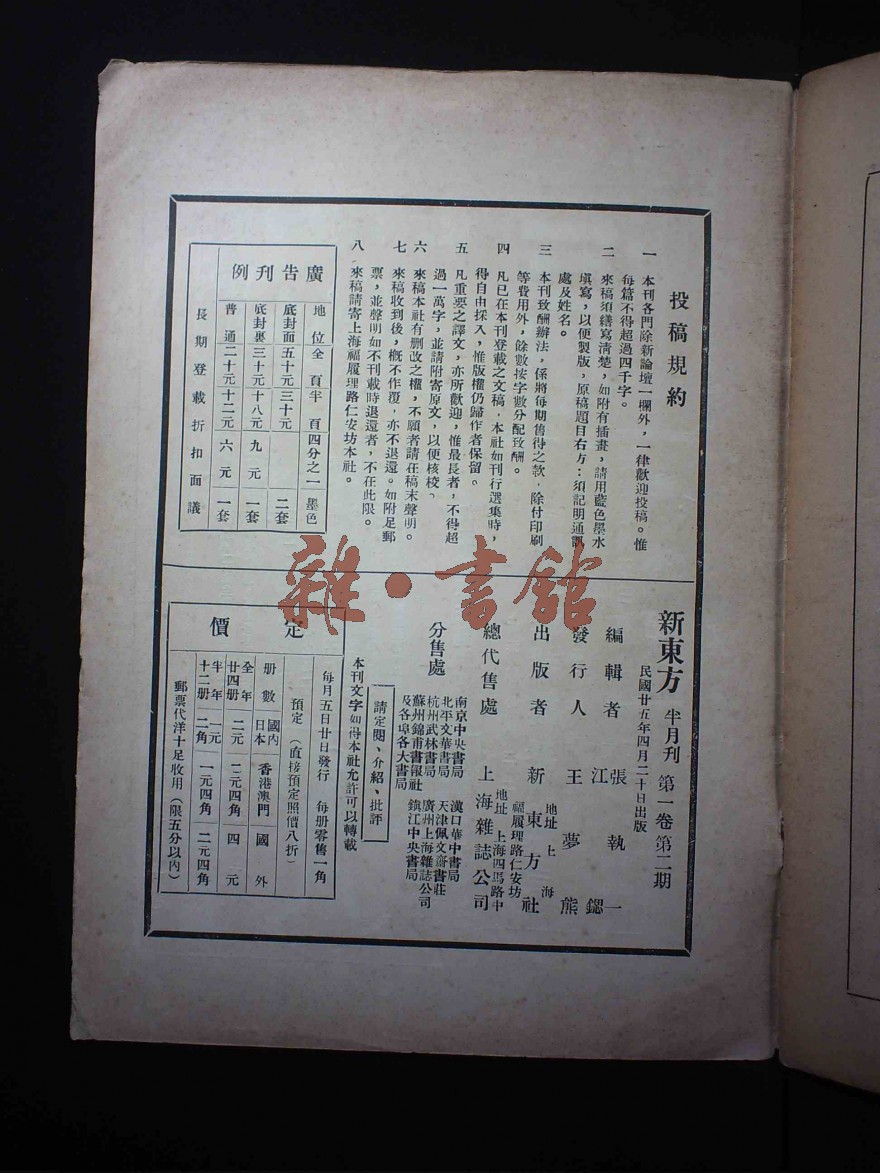 投稿規約
一 本刊各門除新論壇一欄外，一律歡迎投稿。惟
每篇不得超過四千字。
二 來稿須繕寫清楚，如附有插畫，請用藍色墨水
填寫，以便製版，原稿題目右方：須記明通訊
處及姓名。
三 本刊致酬辦法，係將每期售得之款，除付印刷
等費用外，餘數按字數分配致酬。
四 凡已在本刊登載之文稿，本社如刊行選集時，
得自由採入，惟版權仍歸作者保留。
五 凡重要之譯文，亦所歡迎，惟最長者，不得超
過一萬字，並請附寄原文，以便核校。
六 來稿本社有刪改之權，不願者請在稿末聲明。
七 來稿收到後，概不作覆，亦不退還。如附足郵
票，並聲明如不刊載時退還者，不在此限。
八 來稿請寄上海福履理路仁安坊本社。
廣告刊例
地位 全頁 半頁 四分之一 墨色
底封面 五十元 三十元 二套
底封裏 三十元 十八元 九元 一套
普通 二十元 十二元 六元 一套
長期登載折扣面議
新東方 半月刊 第一卷第二期
民國廿五年四月二十日出版
編輯者 張執一
江鍶
發行人 王夢熊
出版者 新東方社
地址 上海
福履理路仁安坊
總代售處 上海雜誌公司
地址 上海四馬路中
分售處
南京中央書局 漢口華中書局
北平文華書局 天津佩文齋書莊
杭州武林書局 廣州上海雜誌公司
蘇州錦甫書報社 鎮江中央書局
及各埠各大書局
請定閱、介紹、批評
本刊文字如得本社允許可以轉載
定價
每月五日廿日發行 每册零售一角
預定（直接預定照價八折）
册數 國內日本 香港澳門 國外
全年廿四册 二元 二元四角 四元
半年十二册 一元二角 一元四角 二元四角
郵票代洋十足收用（限五分以內）
雜·書館